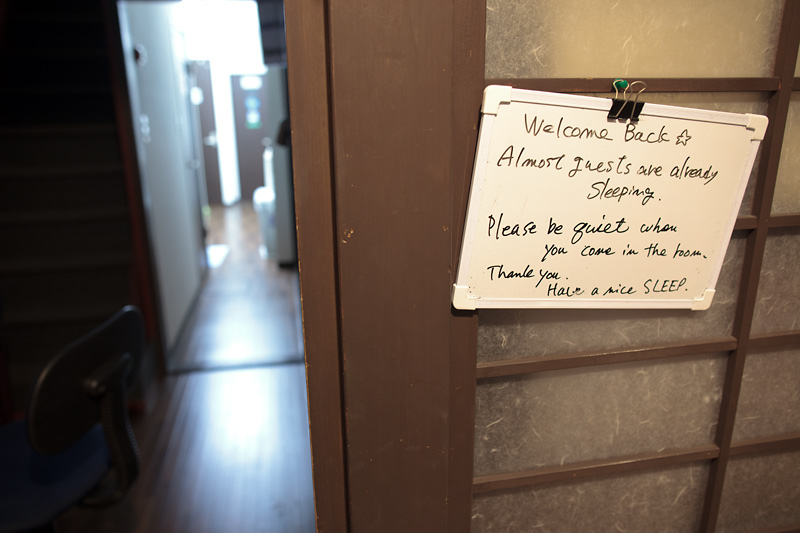 Welcome Back ☆
Almost guests are already
Sleeping.
Please be quiet when
you come in the room.
Thank you.
Have a nice SLEEP.